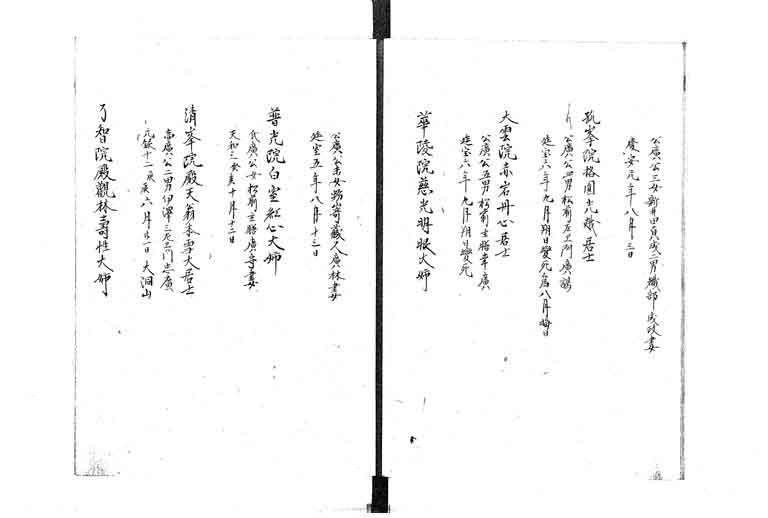 公廣公三女新井田貞成二男織部成政妻
慶安元年八月三日
院格圓士居士
公廣公四男松前左エ門廣
延宝六年九月朔日變死為八月晦日
大雲院赤岩丹心居士
公廣公五男松前主膳幸廣
延宝六年九月朔日變死
華陵院慈光明眼大姉
公廣公末女蛎崎蔵人廣林妻
延宝五年八月十三日
普光院白室紅心大姉
氏廣公女松前主膳廣妻
天和三癸亥十月十二日
清峯院殿天翁未雪大居士
高廣公二男伊澤三左エ門忠廣
元禄十二庚六月廿一日 大洞山
了智院殿觀林壽性大姉